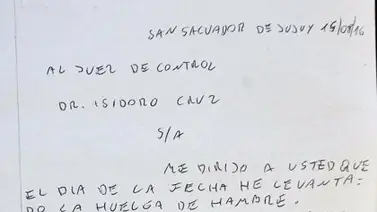 SAN SALVADOR DE JUJUY
AL JUEZ DE CONTROL
DR. ISIDORO CRUZ
S/A
ME DIRIJO A USTED QUE
EL DIA DE LA FECHA HE LEVANTA:
DO LA HUELGA DE HAMBRE.